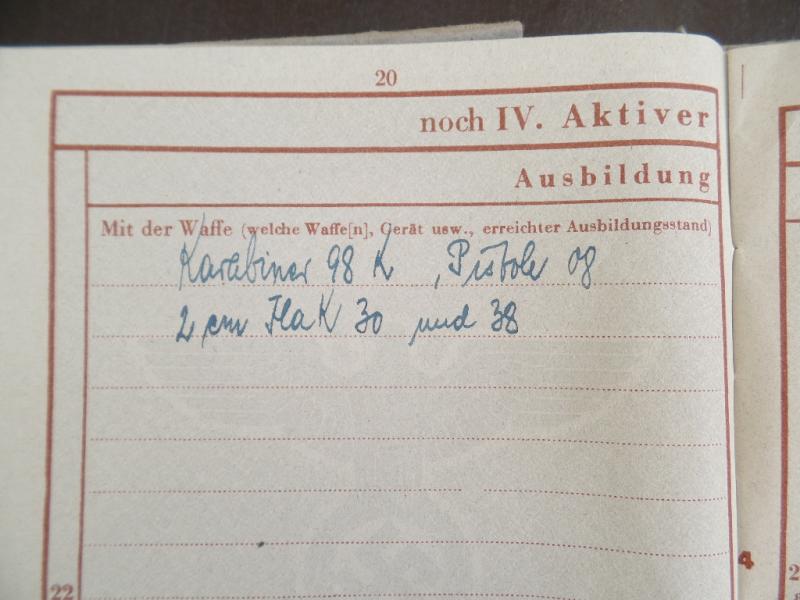 20
noch IV. Aktiver
Ausbildung
Mit der Waffe (welche Waffe[n], Gerät usw., erreichter Ausbildungsstand)
Karabiner 98 K, Pistole 08
2 cm Flak 30 und 38
22
4
2